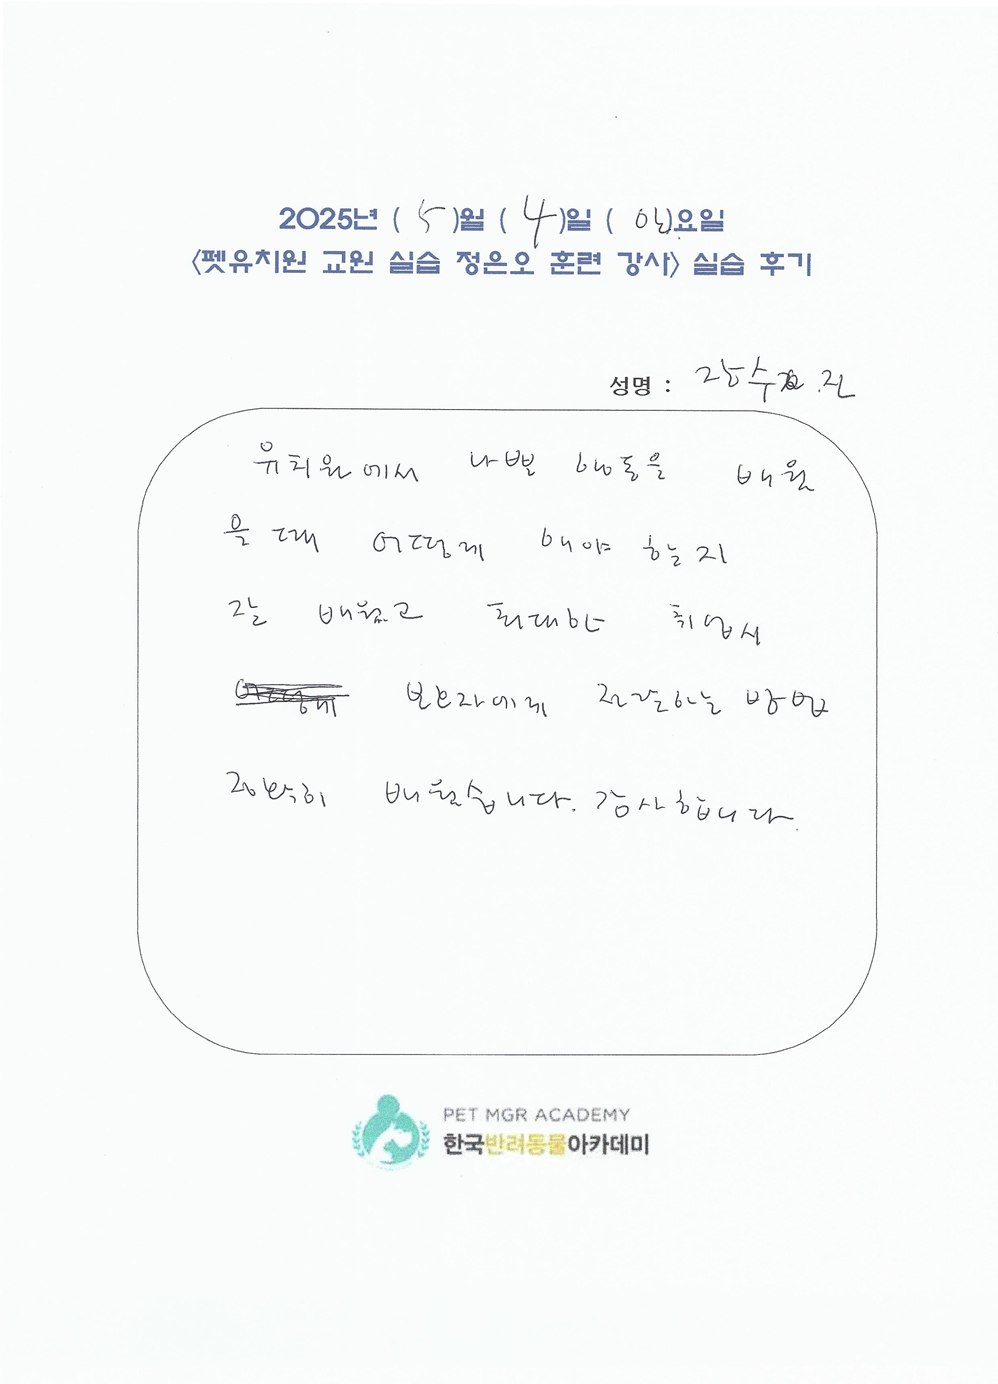 2025년 ( 5 )월 ( 4 )일 ( 일 )요일
<펫유치원 교원 실습 정은오 훈련 강사> 실습 후기
성명 :
유치원에서 나쁜 행동을 배웠
을 때 어떻게 해야 할지
잘 배웠고 최대한 취업시
보호자에게 전달하는 방법
정확히 배웠습니다. 감사합니다.
PET MGR ACADEMY
한국반려동물아카데미